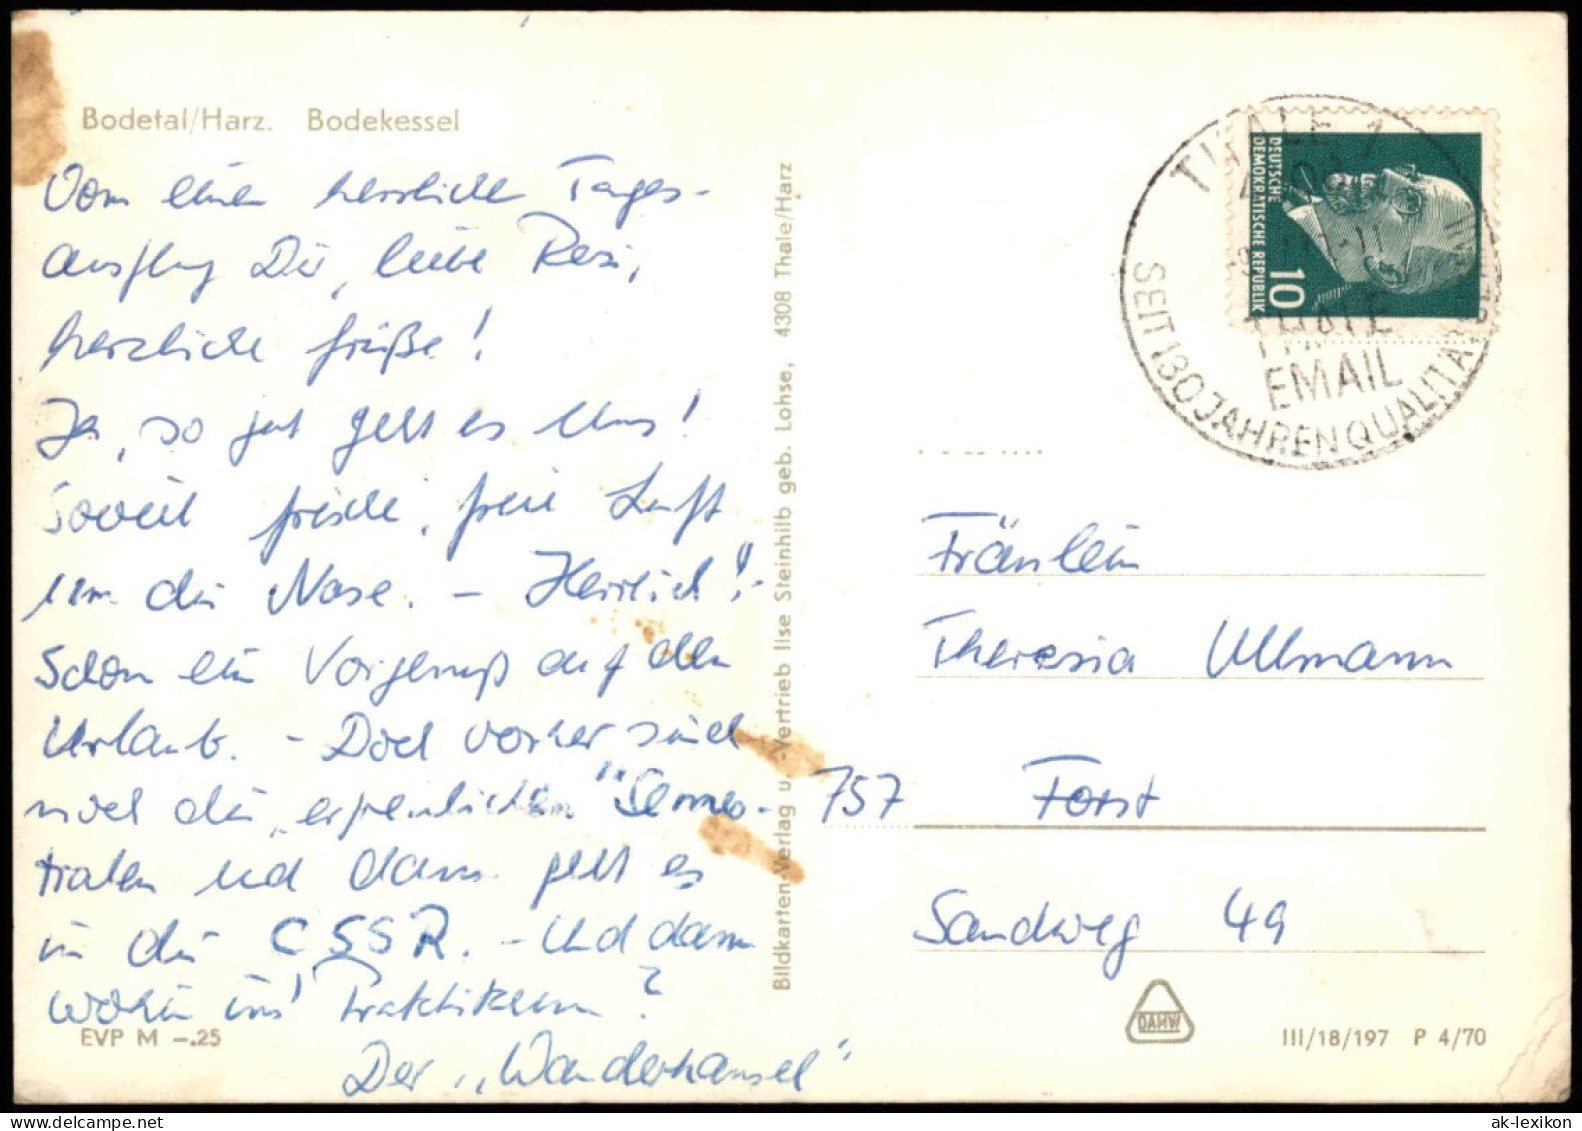 Bodetal/Harz. Bodekessel
Vom einen herrlichen Tages-
ausflug Dir, liebe Resi,
herzliche Grüße!
Ja, so gut geht es Uns!
Soviel frische, freie Luft
um die Nase. – Herrlich!" -
Schon ein Vorgenuß auf den
Urlaub. - Doch vorher sind
noch die „erfreulichen" Semes-
traten und dann geht es
in die CSSR. - Und dann
wohin ins Praktikum?
Der „Wanderhansel"
EVP M –.25
Bildkarten-Verlag u. -Vertrieb Ilse Steinhilb geb. Lohse, 4308 Thale/Harz
DEUTSCHE
DEMOKRATISCHE REPUBLIK
10
THALE 1
THALE
EMAIL
SEIT 130 JAHREN QUALITÄTS
Fräulein
Theresia Ullmann
757 Forst
Sandweg 49
DAHW
III/18/197 P 4/70
ak-lexikon